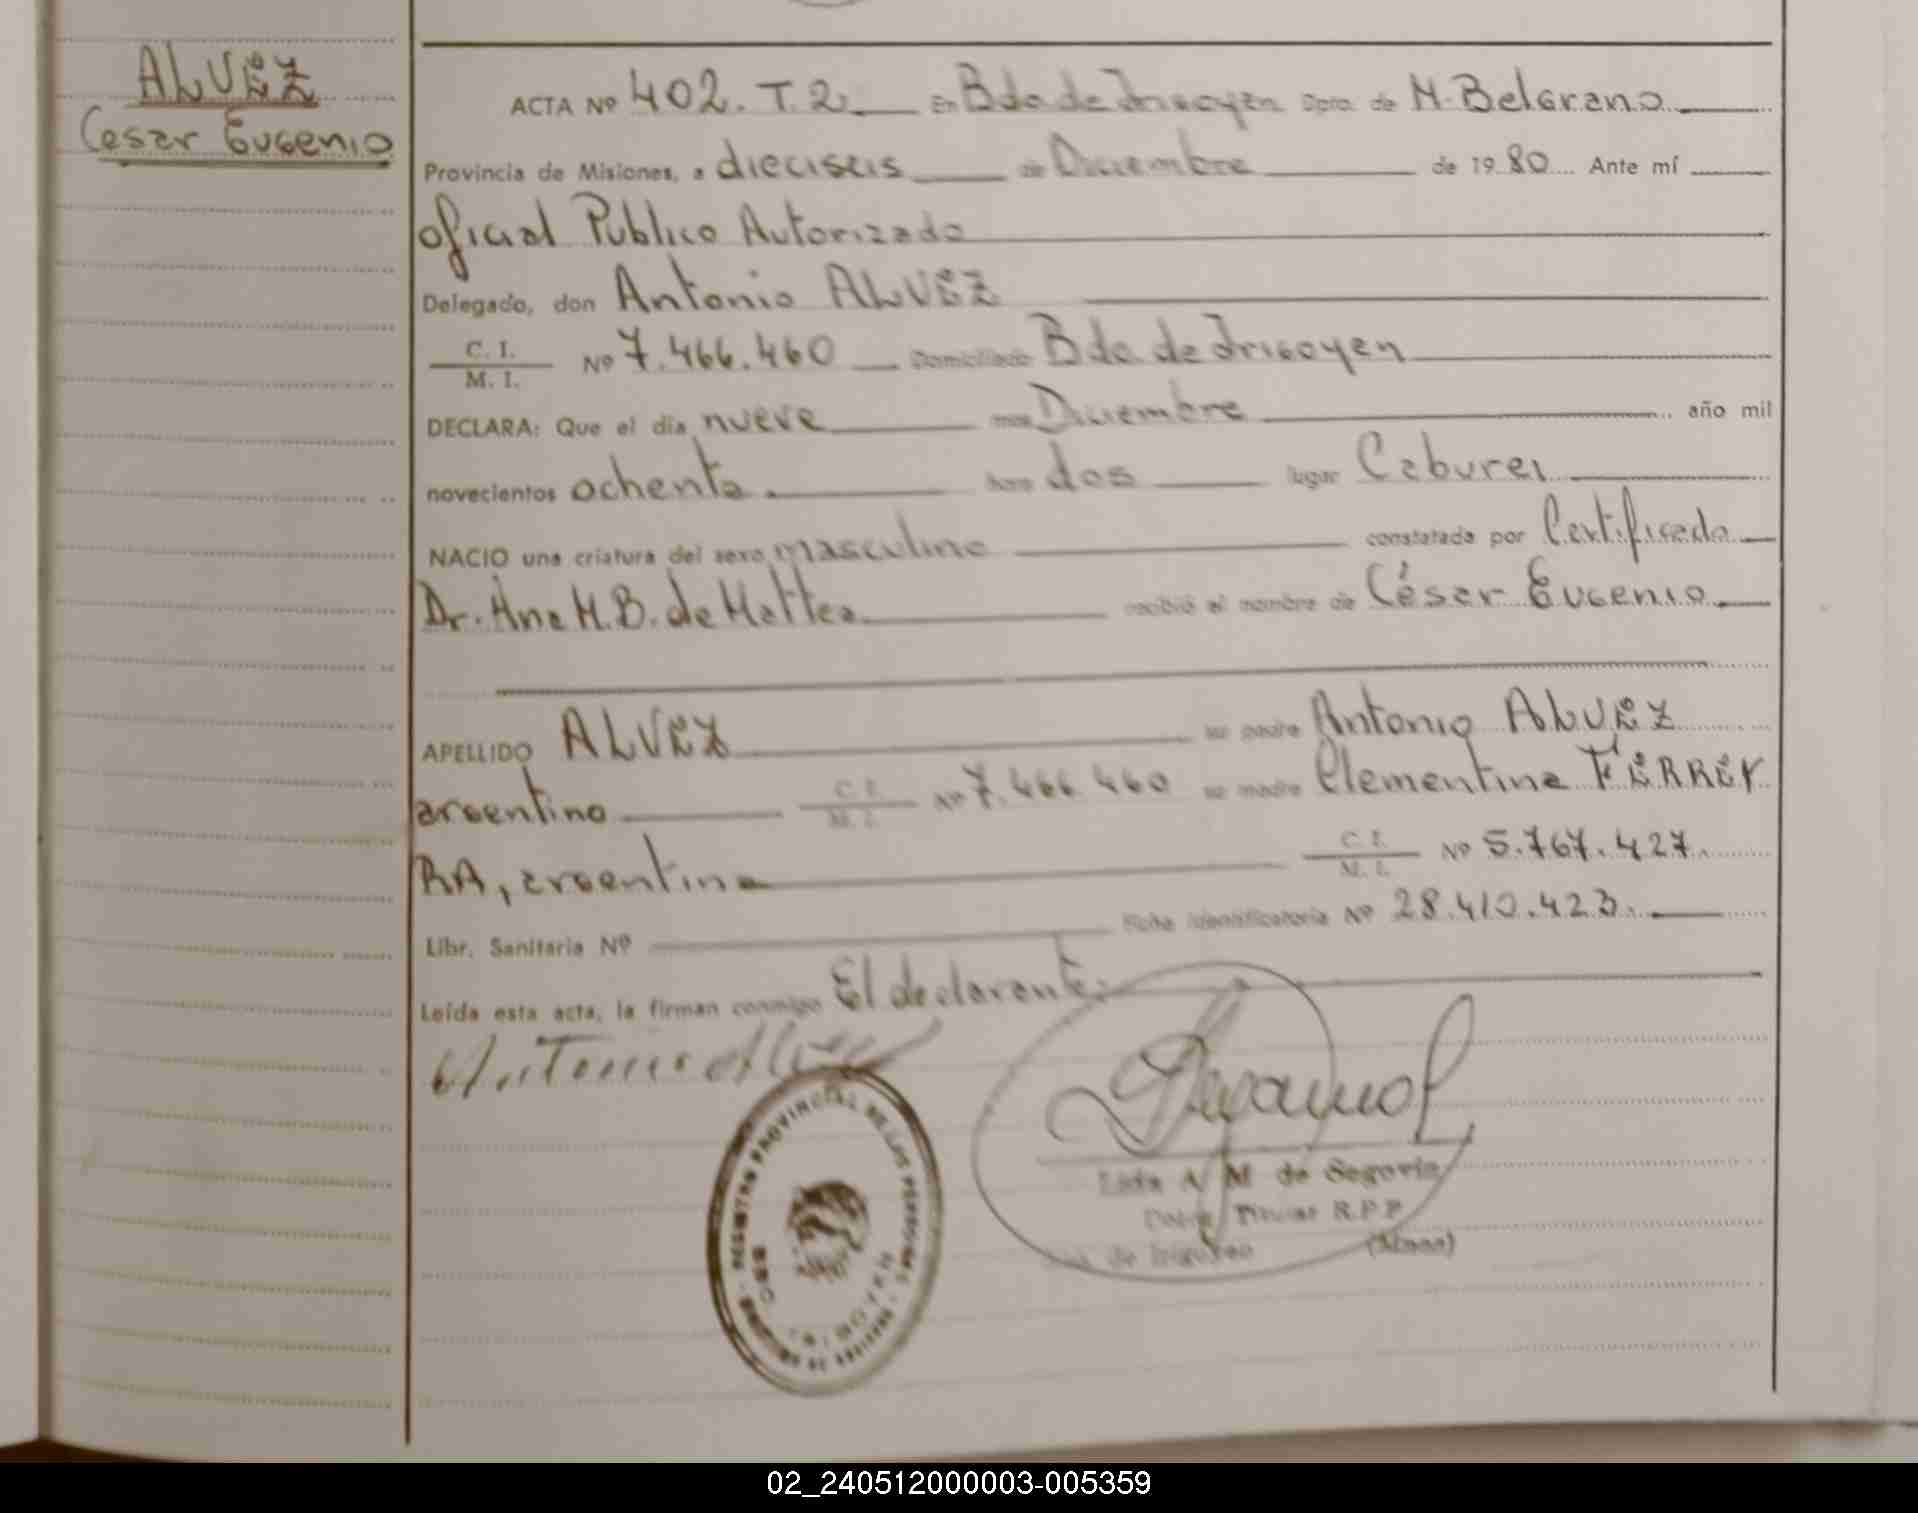 ALVEZ
Cesar Eugenio
ACTA Nº 402. T. 2 En Bdo de Irigoyen Dpto. de M. Belgrano
Provincia de Misiones, a dieciseis de Diciembre de 1980 Ante mí
oficial Publico Autorizado
Delegado, don Antonio ALVEZ
C. I.
M. I. Nº 7.466.460 Domiciliado Bdo. de Irigoyen
DECLARA: Que el día nueve mes Diciembre año mil
novecientos ochenta. hora dos lugar Caburei
NACIO una criatura del sexo masculino constatada por Certificado
Dr. Ana M.B. de Mattea recibió el nombre de César Eugenio
APELLIDO ALVEZ su padre Antonio ALVEZ
argentino C. I. M. I. Nº 7.466.460 su madre Clementina FERREY
RA, argentina C. I. M. I. Nº 5.767.427.
Libr. Sanitaria Nº Ficha identificatoria Nº 28.410.423.
Leída esta acta, la firman conmigo El declarante.
Antonio Alvez
REGISTRO PROVINCIAL DE LAS PERSONAS
Lida A. M de Segovia
Titular R.P.P
de Irigoyen (Mnes)
02_240512000003-005359